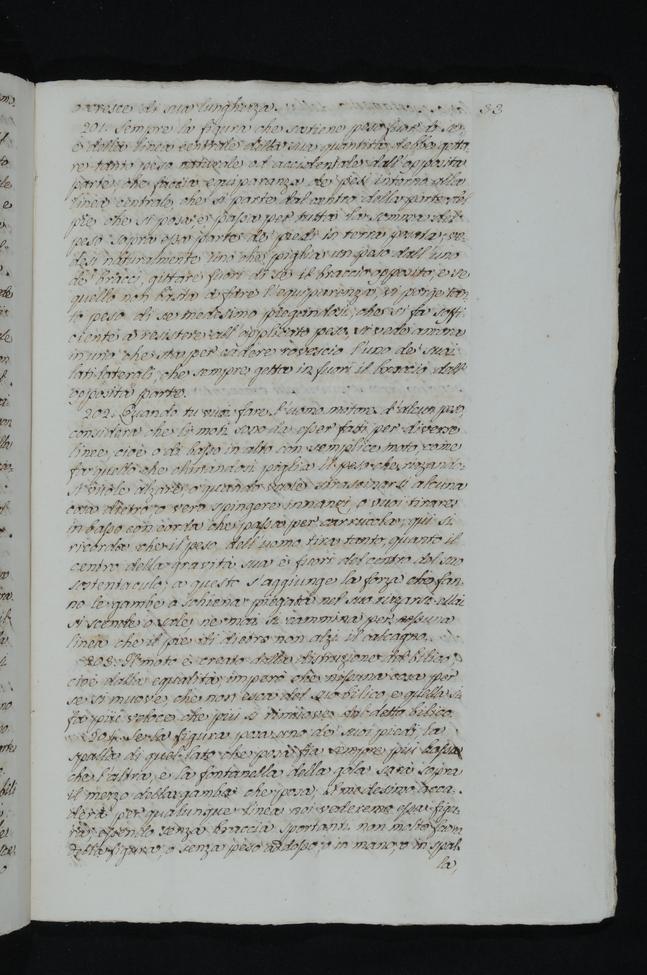 accresce di sua lunghezza. 33
201. Sempre la figura che sostiene peso fuor di se,
e della linea centrale della sua quantità debbe getta
re tanto peso naturale ed accidentale dall'opposita
parte, che faccia equiparanza de pesi intorno alla
linea centrale, che si parte dal centro della parte del
pie, che si posa, e passa per tutta la somma del
peso sopra essa parte de' piedi in terra posata; ve
desi naturalmente uno che piglia un peso dall'uno
de' bracci, gittare fuori di se il braccio opposito, e se
quello non basta a fare l'equiparenza, vi porge tan
to peso di se medesimo piegandosi, che si fa suffi
ciente a resistere all' peso, si vede ancora
in uno che sta per cadere rovescio l'uno de' suoi
lati laterali, che sempre getta in fuori il braccio dall'
opposita parte.
202. Quando tu vuoi fare l'uomo motore d'alcun peso,
considera che li moti sono da esser fatti per diverse
linee, cioè o di basso in alto con semplice moto, come
fa quello che chinandosi piglia il peso che rizzando
si vuole alzare, o quando vuole strascinarsi alcuna
cosa dietro, o vero spingere innanzi, o vuoi tirare
in basso con corda che passa per carrucola; qui si
ricorda che il peso dell'uomo tira tanto, quanto il
centro della gravità sua è fuori del centro del suo
sostentacolo; a questo s'aggiunge la forza che fan
no le gambe a schiena piegata nel suo rizzarsi
si scende o sale, ne mai si cammina per nessuna
linea che il pie di dietro non alzi il calcagno.
203. Il moto è creato dalla distruzione del bilico,
cioè dalla equalità imperò che nissuna cosa per
se si muove, che non esca del suo bilico, e quella si
fa più veloce, che più si rimuove dal detto bilico.
204. Se la figura posa uno de' suoi piedi, la
spalla di quel lato che posa fia sempre più bassa
che l'altra, e la fontanella della gola sarà sopra
il mezzo della gamba che posa, il medesimo acca
derà per qualunque linea noi vederemo essa figu
ra, essendo senza braccia sportanti non molto fuor
della figura, o senza peso addosso, o in mano, o in spal
la,